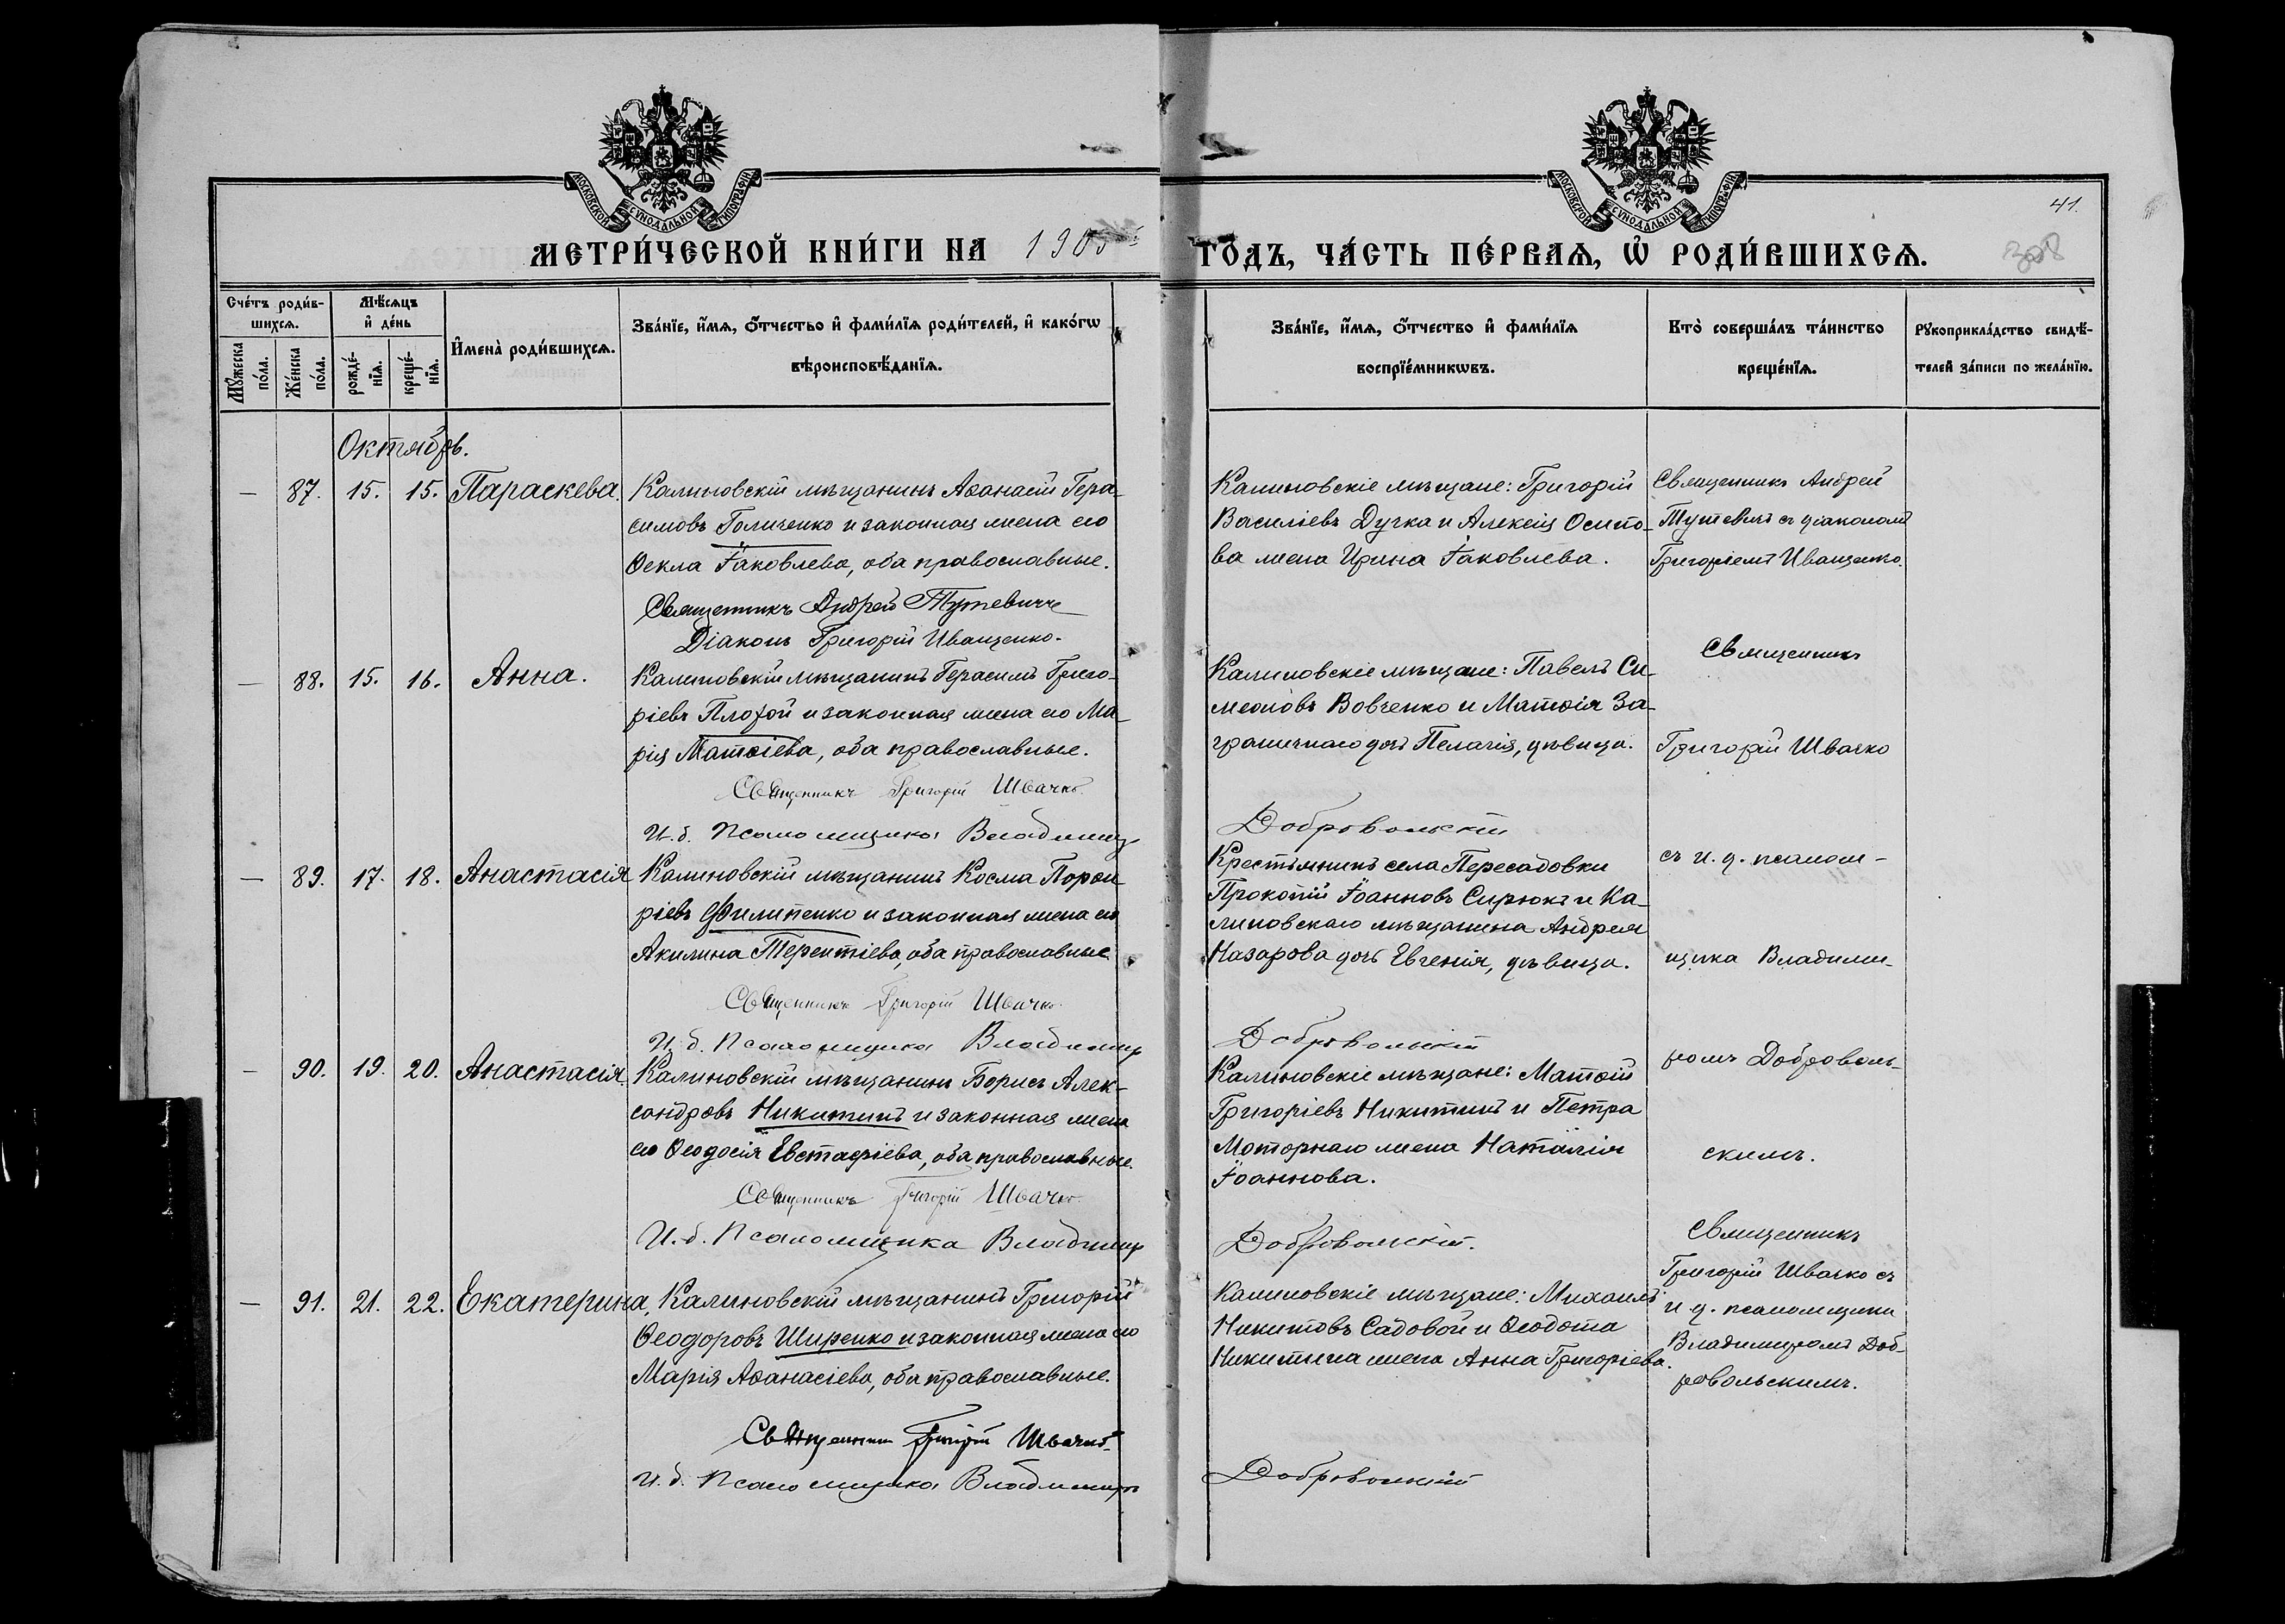 МОСКОВСКОЙ СѴНОДАЛЬНОЙ ТИПОГРАФІИ
МОСКОВСКОЙ СѴНОДАЛЬНОЙ ТИПОГРАФІИ
41.
МЕТРИ́ЧЕСКОЙ КНИ́ГИ НА 1905 ГО́ДЪ, ЧА́СТЬ ПЕ́РВАѦ, Ѡ РОДИ́ВШИХСѦ.
Сче́тъ роди́в-
шихсѧ.
Мꙋ́жеска по́ла.
Же́нска по́ла.
Мѣ́сѧцъ
и҆ де́нь
рожде́-
нїѧ.
креще́-
нїѧ.
И҆мена̀ роди́вшихсѧ.
Зва́нїе, и҆́мѧ, ѻ҆́тчестьо и҆ фами́лїѧ роди́телей, и҆ како́гѡ
вѣроисповѣ́данїѧ.
Зва́нїе, и҆́мѧ, ѻ҆́тчество и҆ фами́лїѧ
воспрїе́мникѡвъ.
Кто̀ соверша́лъ та́инство
креще́нїѧ.
Рꙋкоприкла́дство свидѣ́-
телей за́писи по жела́нїю.
Октябрь.
— 87. 15. 15. Параскева.
Калиновскій мѣщанинъ Аѳанасій Гера-
симовъ Голиченко и законная жена его
Ѳекла Іаковлева, оба православные.
Священникъ Андрей Тутевичъ
Діаконъ Григорій Иващенко.
Калиновскіе мѣщане: Григорій
Василіевъ Дучка и Алексія Осипо-
ва жена Ирина Іаковлева.
Священникъ Андрей
Тутевичъ съ діакономъ
Григоріемъ Иващенко.
— 88. 15. 16. Анна.
Калиновскій мѣщанинъ Герасимъ Григо-
ріевъ Плохой и законная жена его Ма-
рія Матѳіева, оба православные.
Священникъ Григорій Швачко.
И. д. Псаломщика Владимир
Калиновскіе мѣщане: Павелъ Си-
меоновъ Вовченко и Матѳія За-
граничнаго дочь Пелагія, дѣвица.
Добровольскій
Священникъ
Григорій Швачко
— 89. 17. 18. Анастасія
Калиновскій мѣщанинъ Косма Порфи
ріевъ Филипенко и законная жена его
Акилина Терентіева, оба православные
Священникъ Григорій Швачко.
И. д. Псаломщика Владимир
Крестьянинъ села Пересадовки
Прокопій Іоанновъ Сирюкъ и Ка-
линовскаго мѣщанина Андрея
Назарова дочь Евгенія, дѣвица.
Добровольскій
съ и. д. псалом-
щика Владими-
— 90. 19. 20. Анастасія
Калиновскій мѣщанинъ Борисъ Алек-
сандровъ Никитинъ и законная жена
его Ѳеодосія Евстафіева, оба православные.
Священникъ Григорій Швачко.
И. д. Псаломщика Владимир
Калиновскіе мѣщане: Матѳій
Григоріевъ Никитинъ и Петра
Моторнаго жена Наталія
Іоаннова.
Добровольскій.
ромъ Доброволь-
скимъ.
— 91. 21. 22. Екатерина
Калиновскій мѣщанинъ Григорій
Ѳеодоровъ Ширенко и законная жена его
Марія Аѳанасіева, оба православные.
Священникъ Григорій Швачко.
И. д. Псаломщика Владимиръ
Калиновскіе мѣщане: Михаилъ
Никитовъ Садовой и Ѳеодота
Никитина жена Анна Григоріева.
Добровольскій
Священникъ
Григорій Швачко съ
и. д. псаломщика
Владимиромъ Доб-
ровольскимъ.